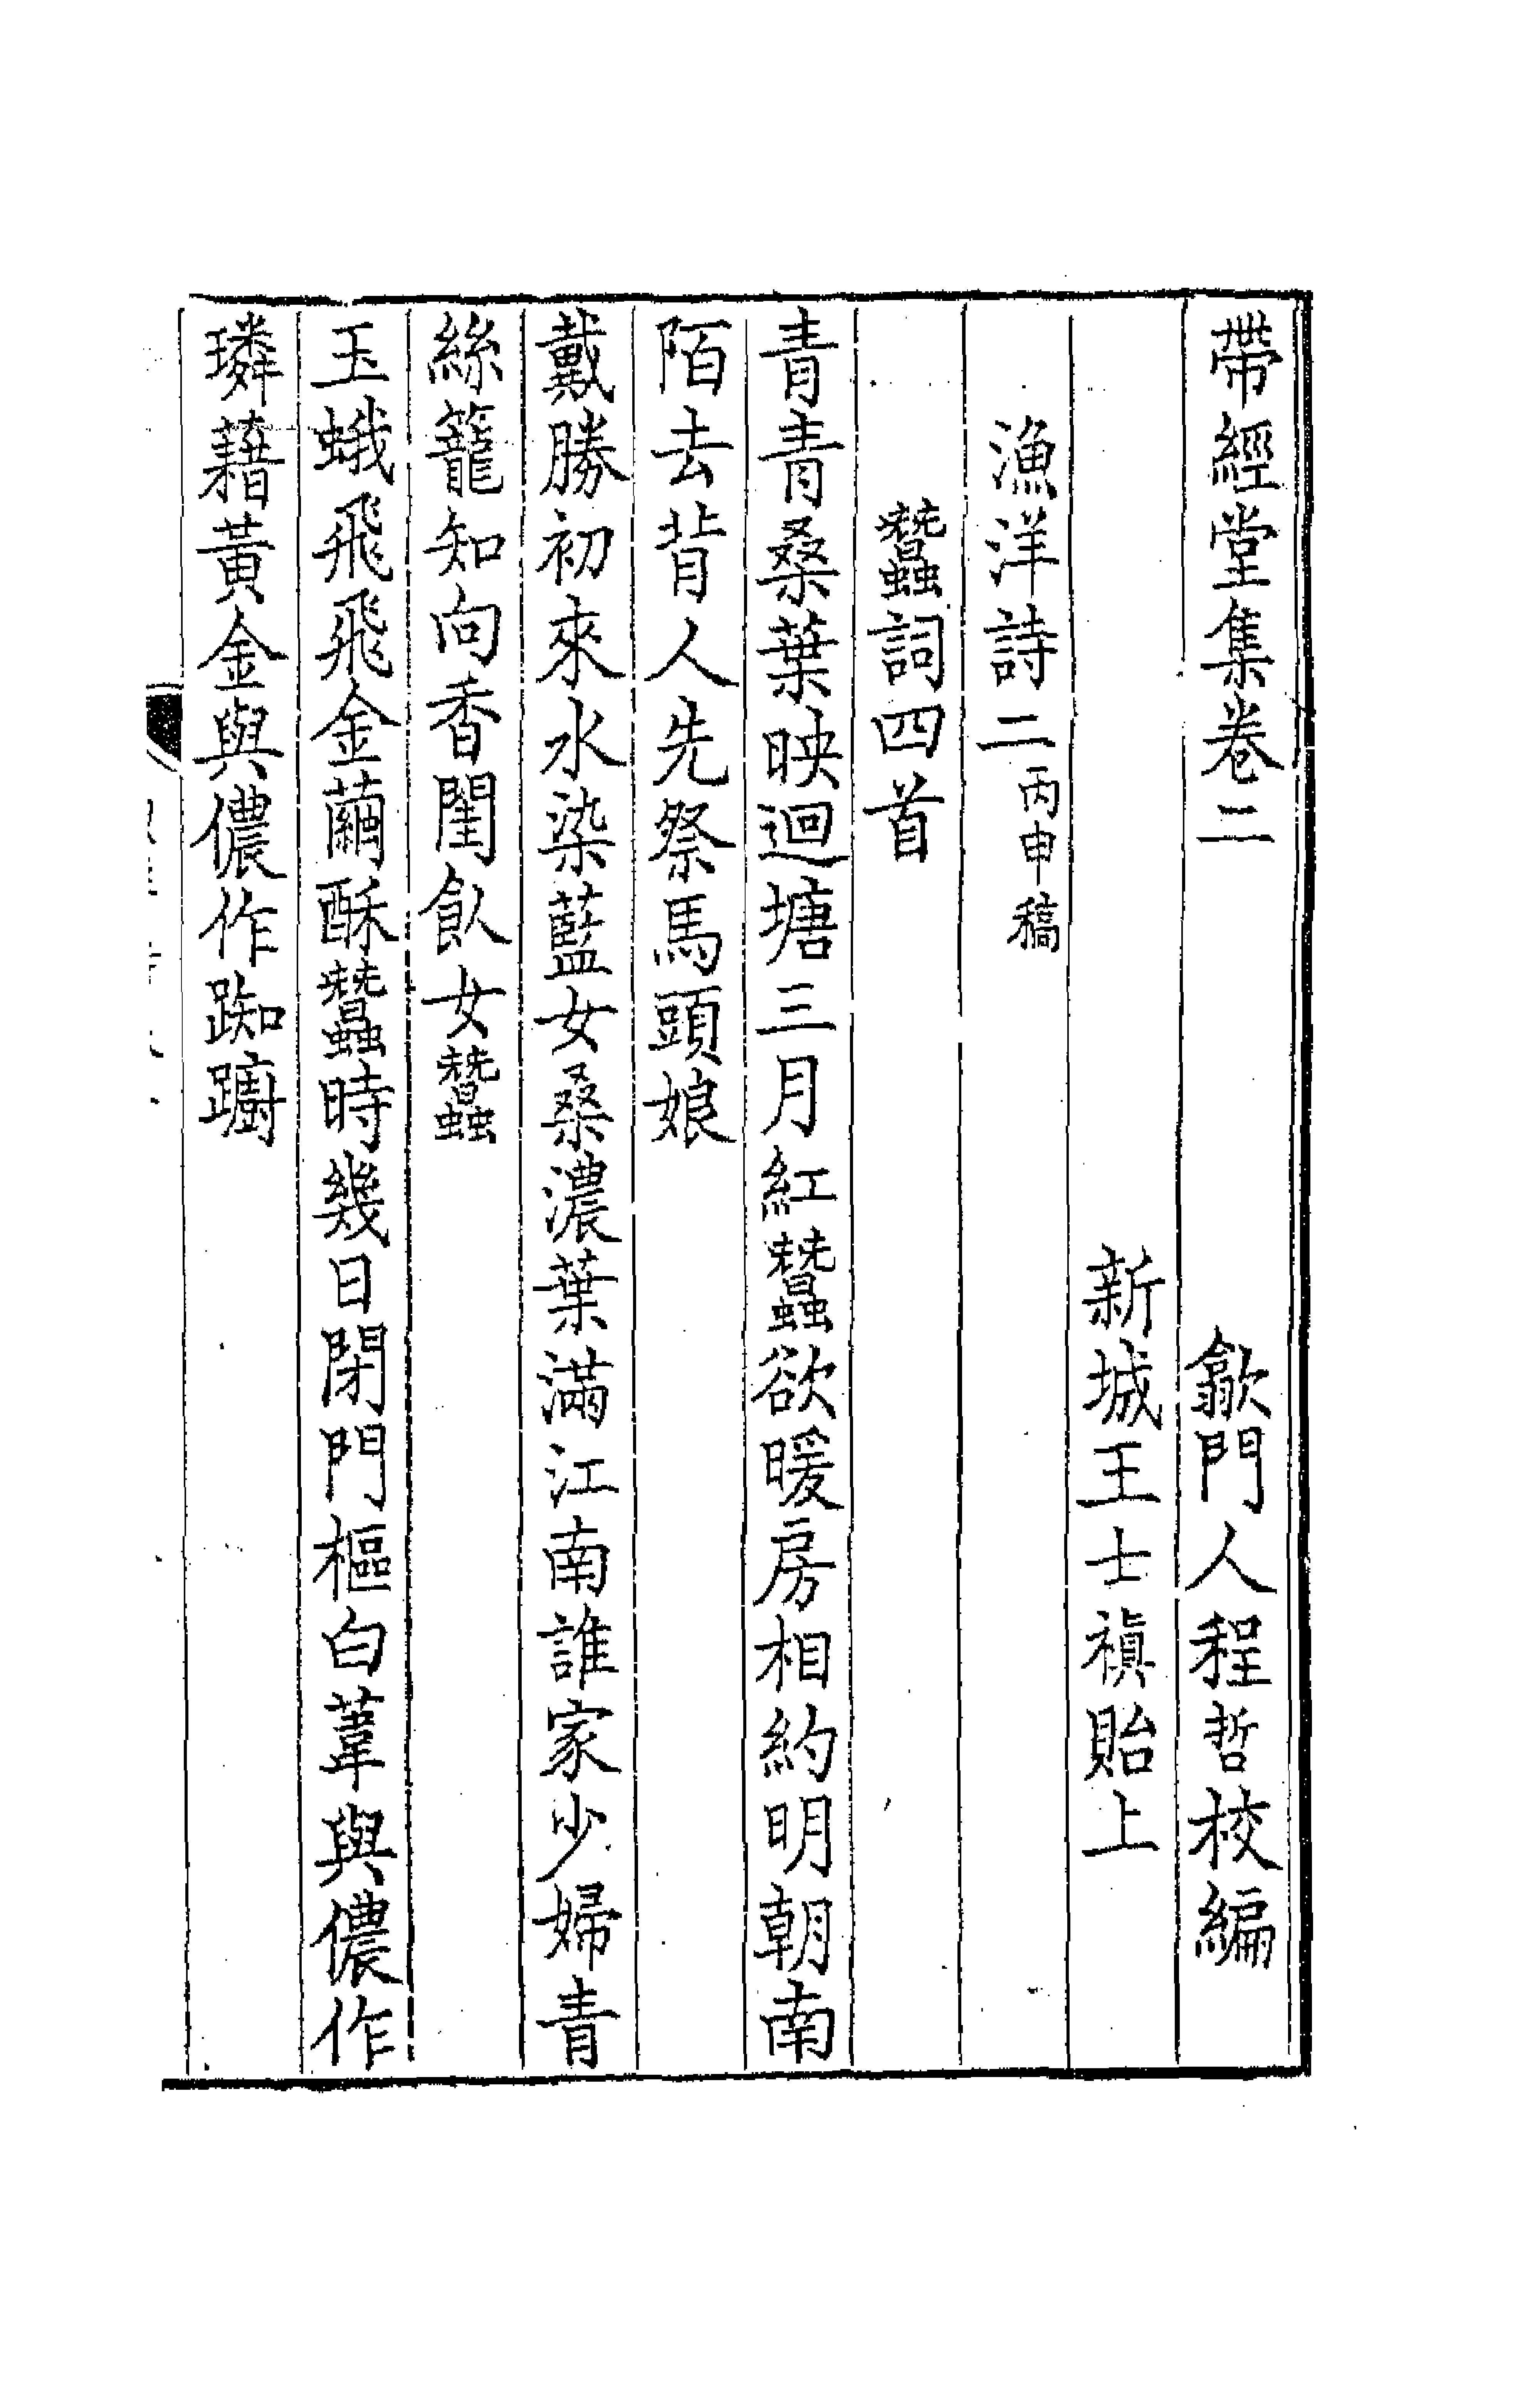 帶經堂集卷二　歙門人程哲校編
新城王士禛貽上
漁洋詩二丙申稿
蠶詞四首
青青桑葉映迴塘三月紅蠶欲暖房相約明朝南
陌去背人先祭馬頭娘
戴勝初來水染藍女桑濃葉滿江南誰家少婦青
絲籠知向香閨飤女蠶
玉蛾飛飛金繭酥蠶時幾日閉門樞白葦與儂作
璘藉黃金與儂作踟躕